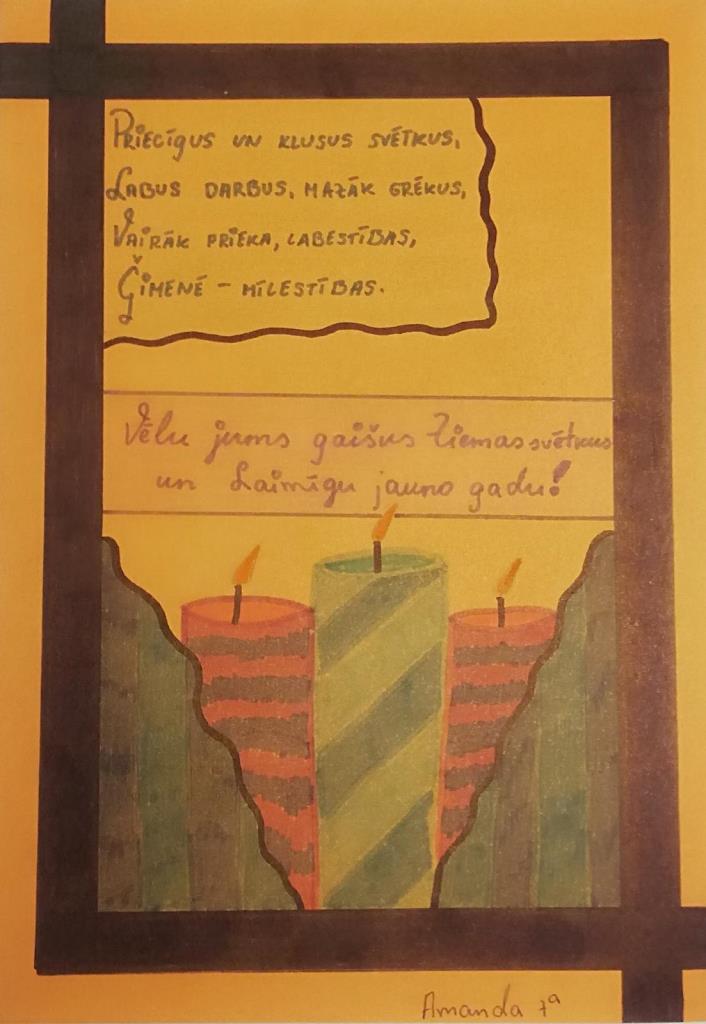 Priecīgus un klusus svētkus,
Labus darbus, mazāk grēkus,
Vairāk prieka, labestības,
Ģimenē - mīlestības.
Vēlu jums gaišus Ziemassvētkus
un Laimīgu jauno gadu!
Amanda 7a